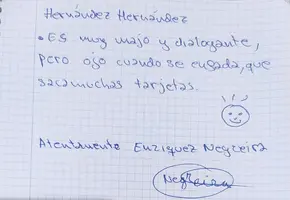 Hernández Hernández
• Es muy majo y dialogante,
pero ojo cuando se enfada, que
saca muchas tarjetas.
Atentamente Enriquez Negreira
Negreira